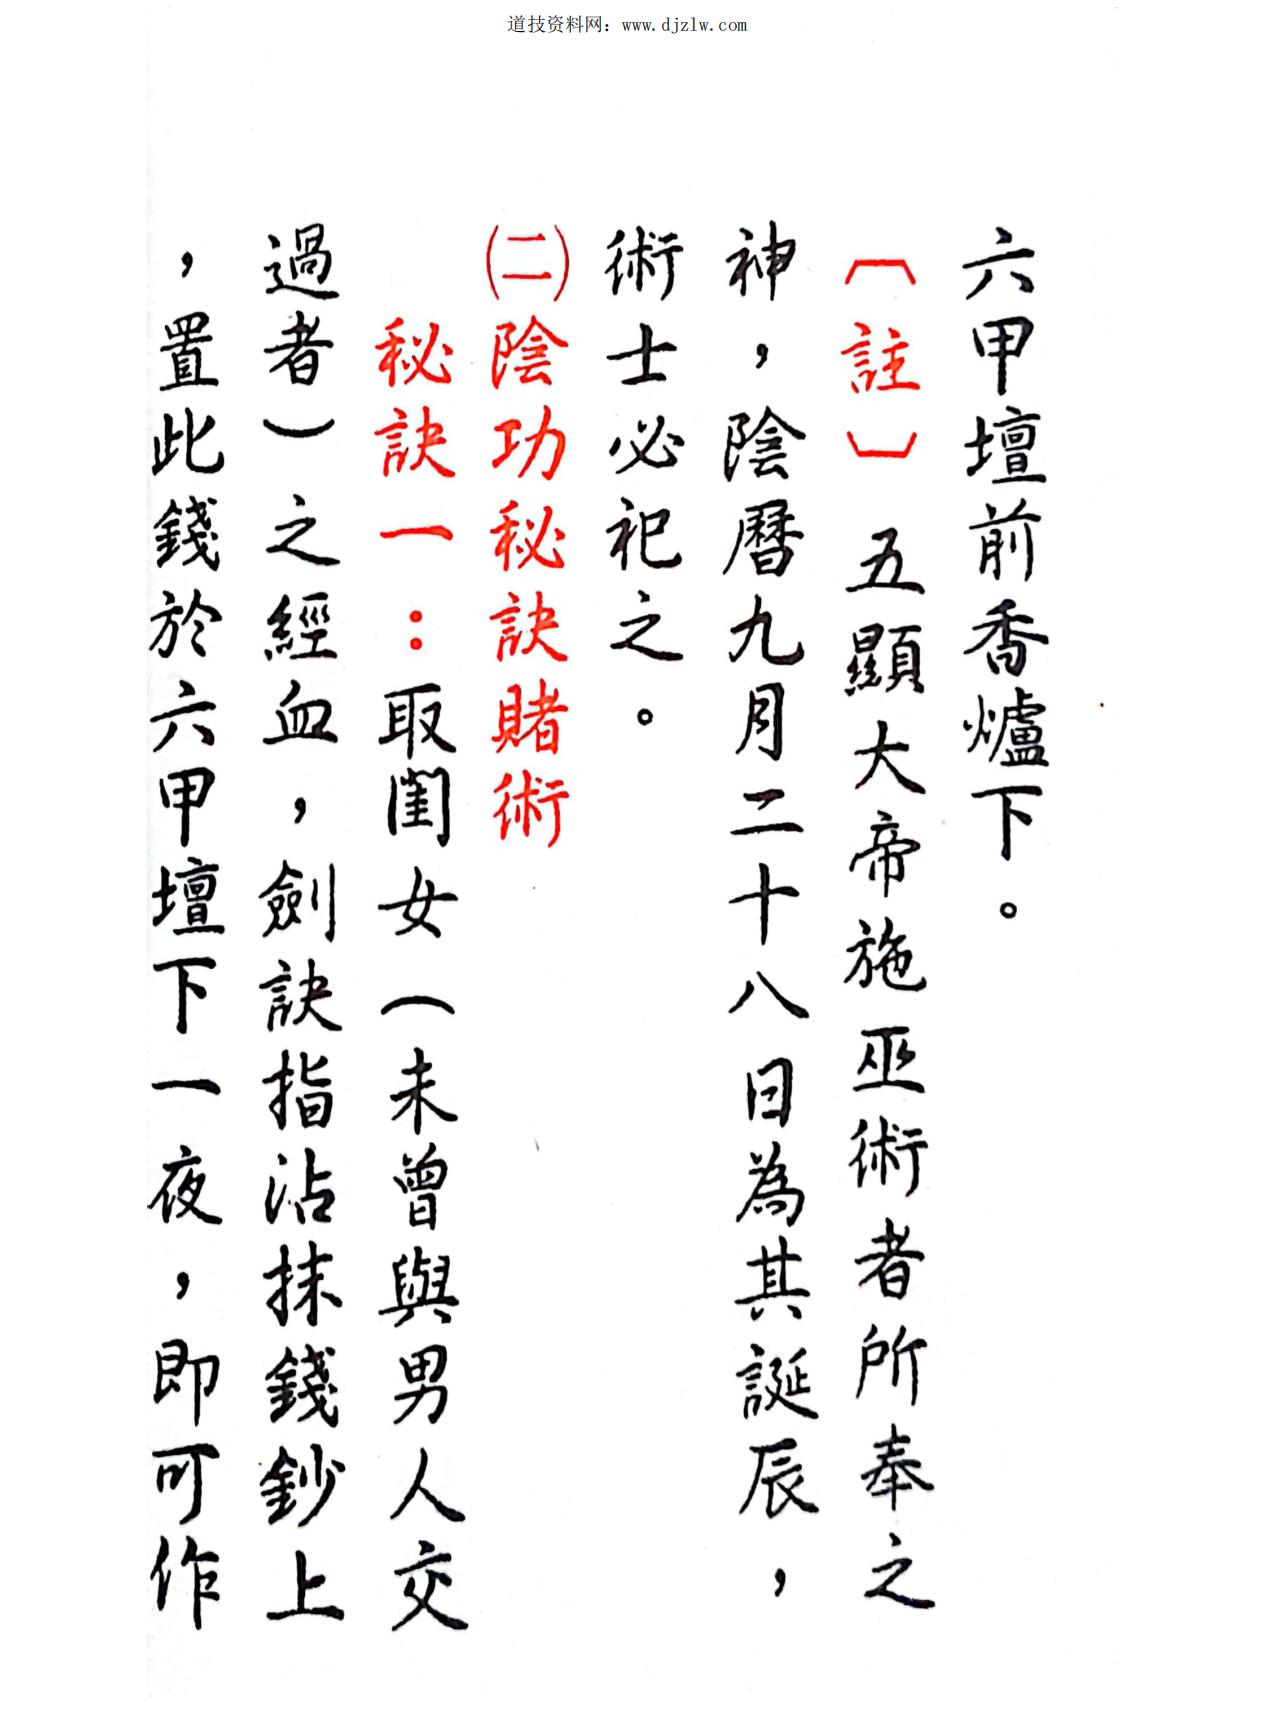 道技资料网：www.djzlw.com
六甲壇前香爐下。
〔註〕五顯大帝施巫術者所奉之
神，陰曆九月二十八日為其誕辰，
術士必祀之。
㈡陰功秘訣賭術
秘訣一：取閨女（未曾與男人交
過者）之經血，劍訣指沾抹錢鈔上
，置此錢於六甲壇下一夜，即可作